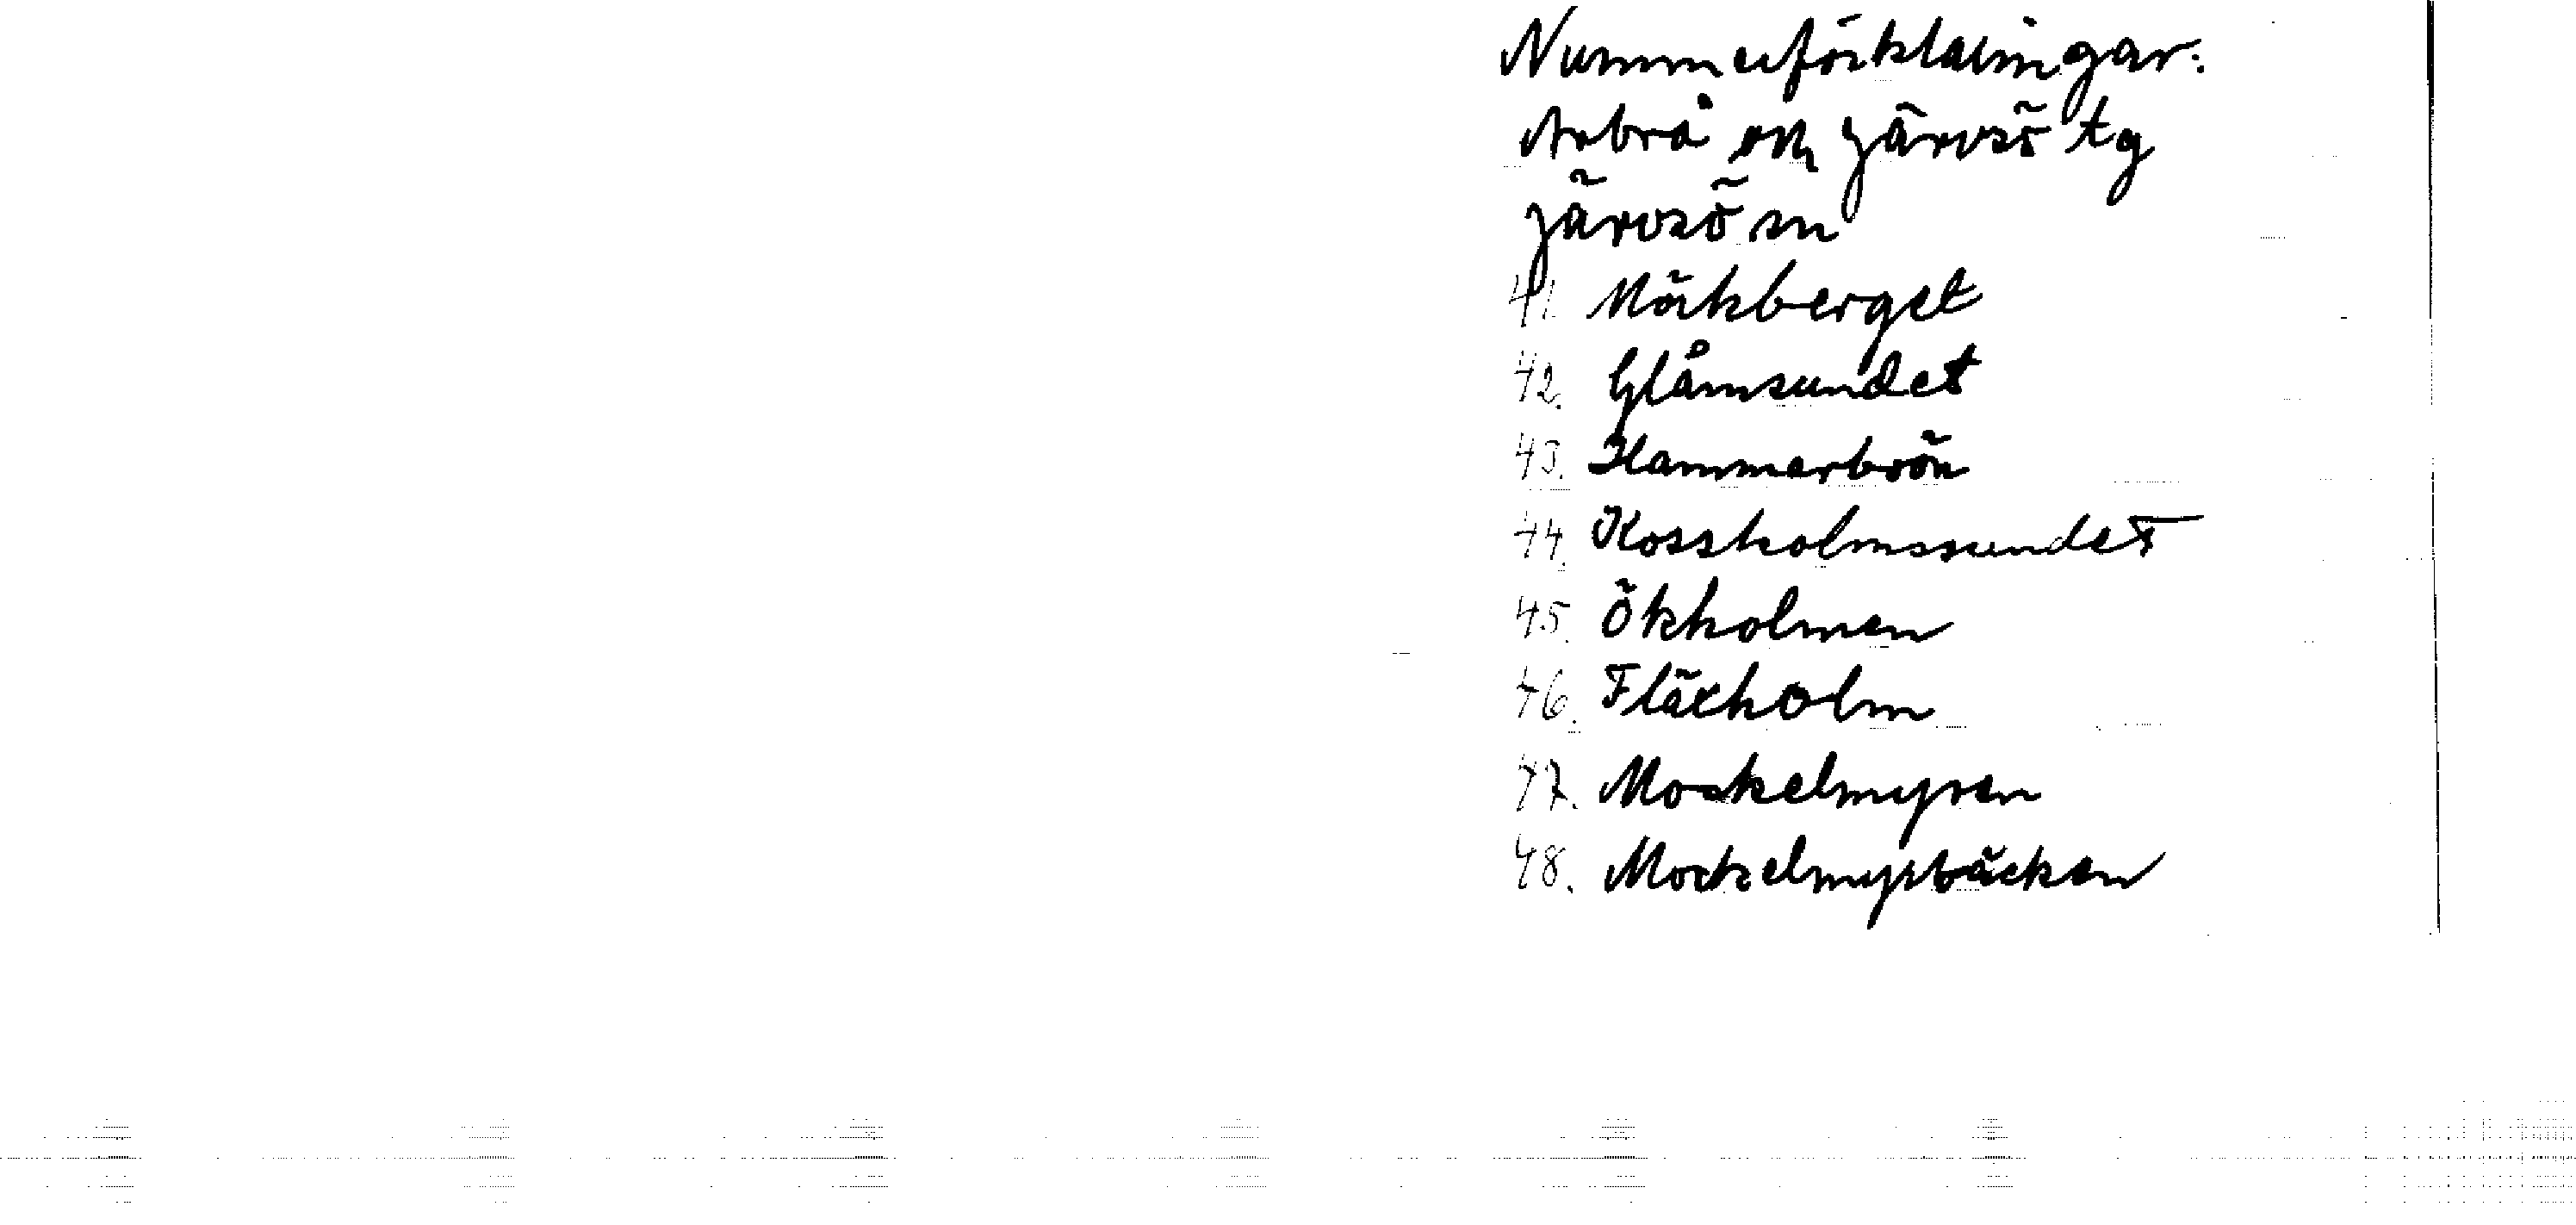 Nummerförklaringar.
Arbrå och Järvsö tg
Järvsö sn
41. Mörkberget
42. Glåmsundet
43. Hammarbrön
44. Kossholmssundet
45. Ökholmen
46. Flächolm
47. Mockelmyren
48. Mockelmyrbäcken